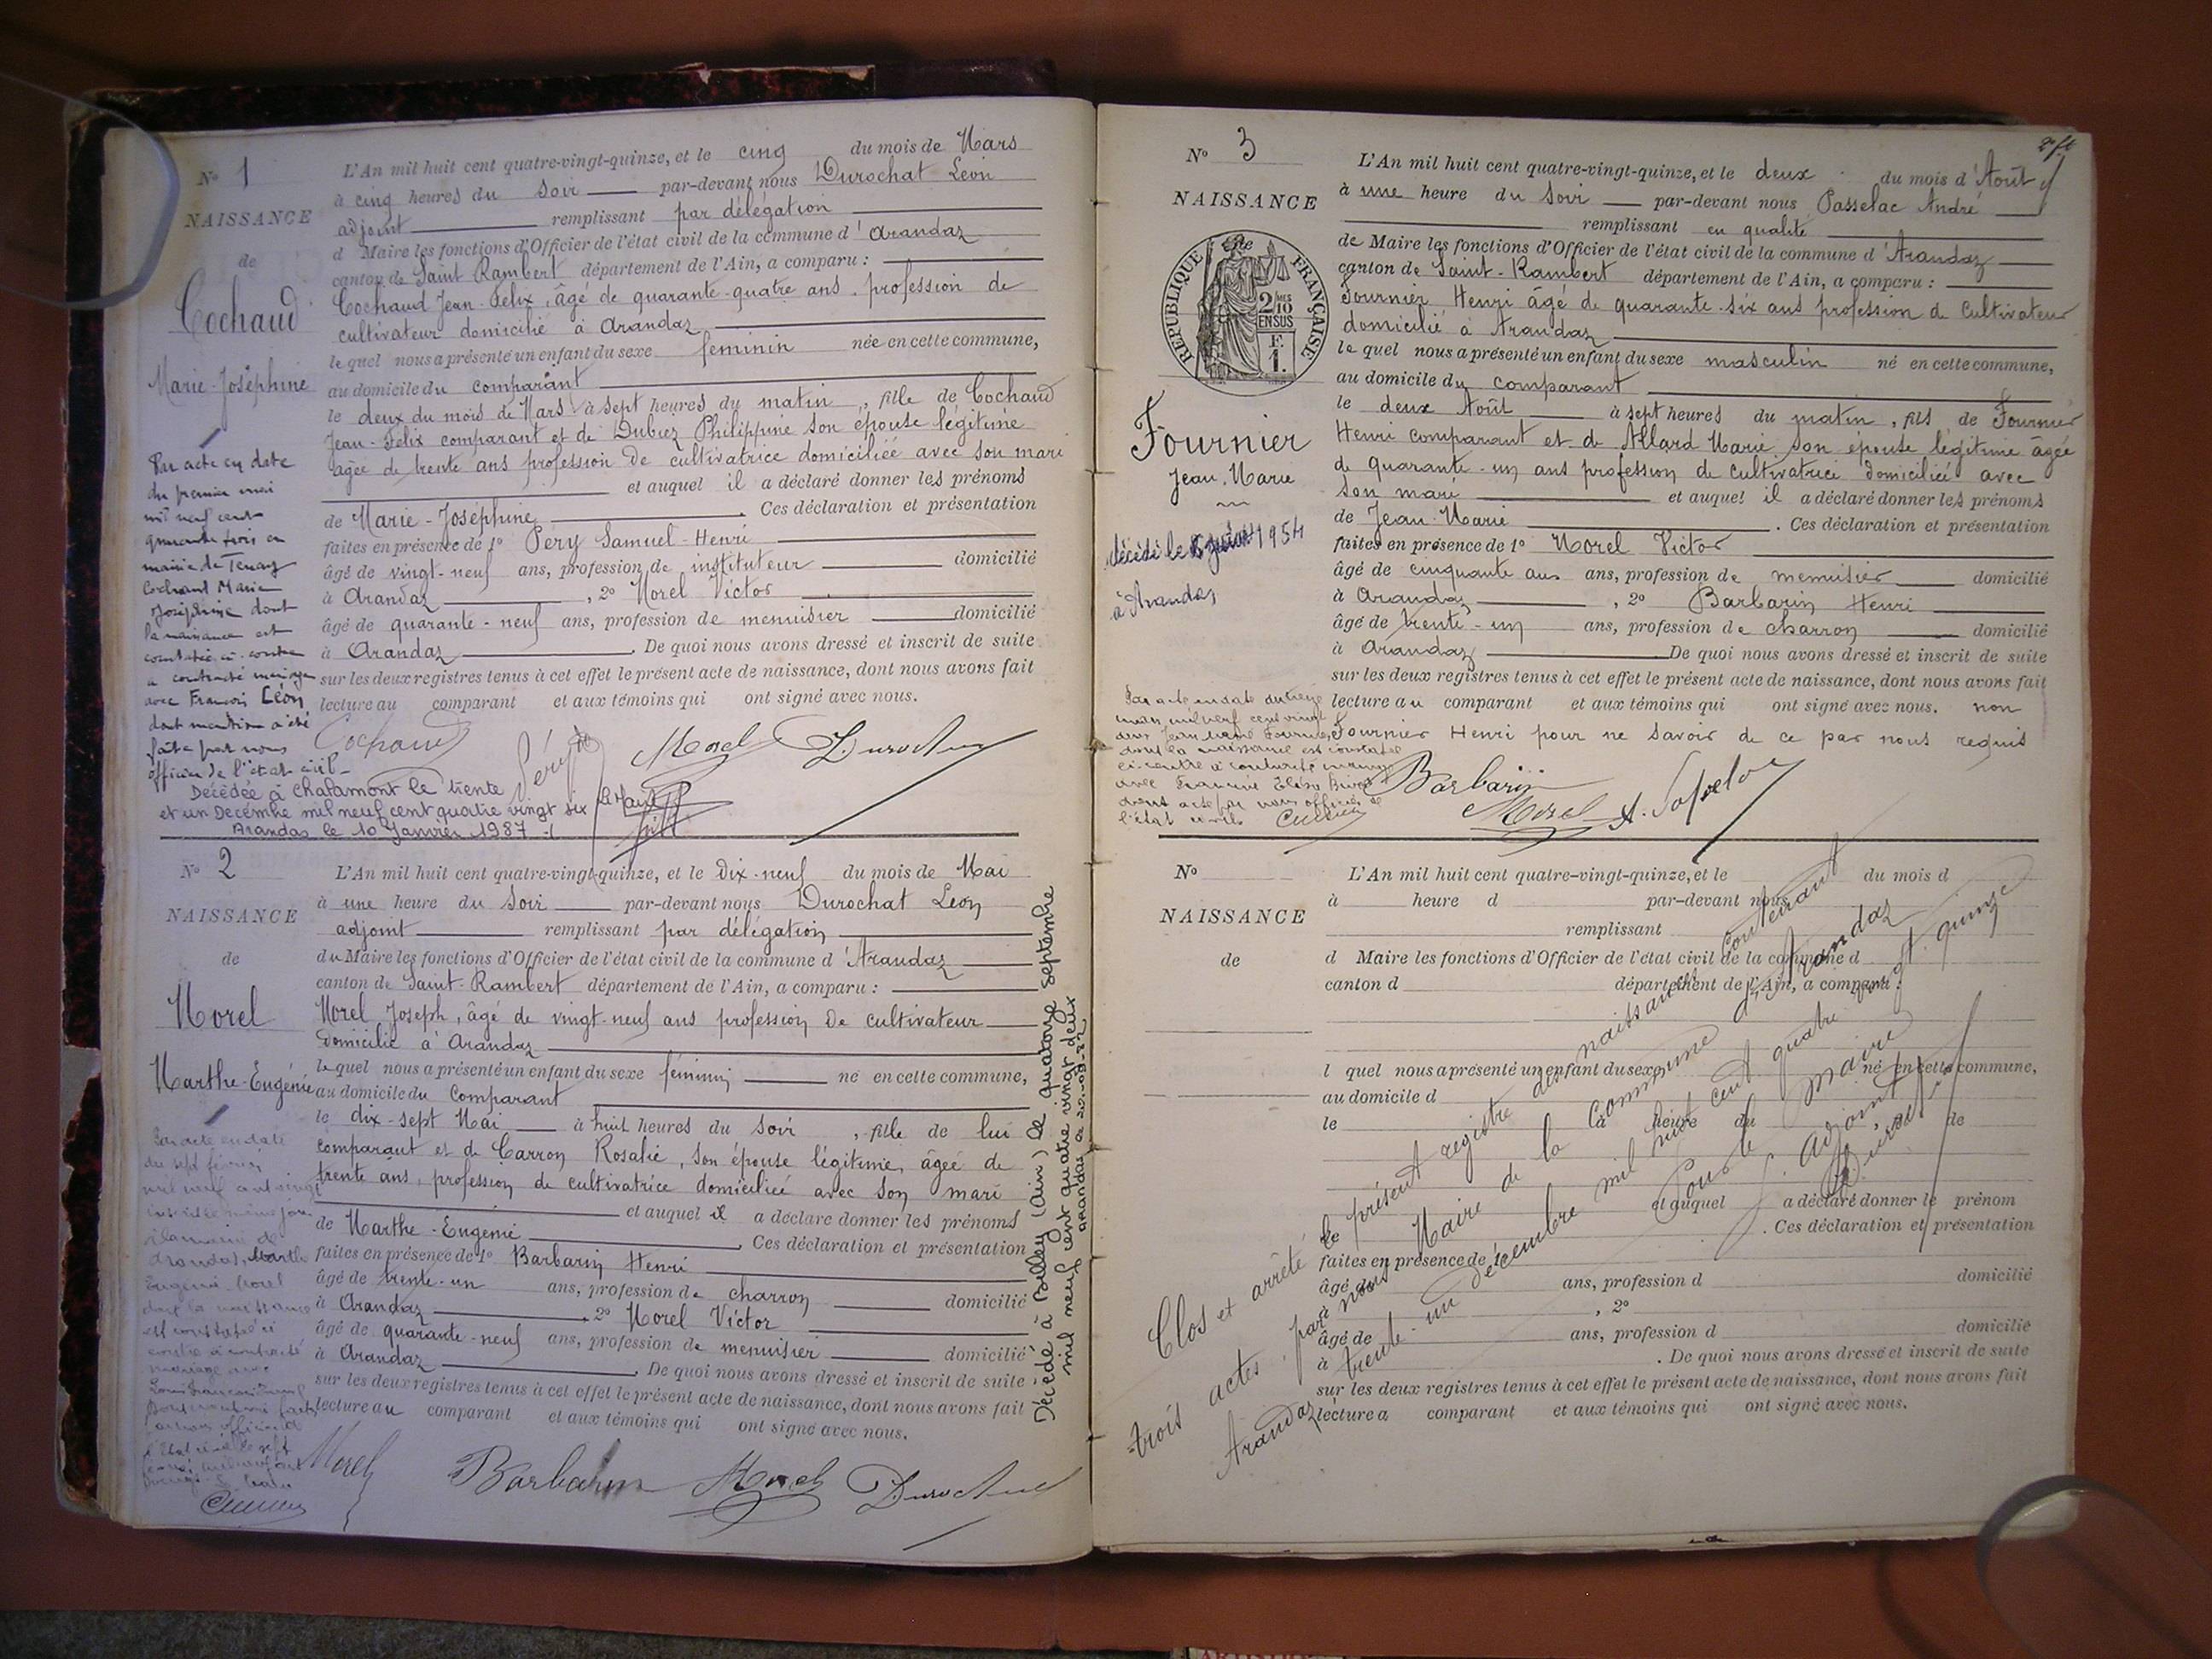 N° 1
NAISSANCE
de
Cochaud
Marie-Joséphine
L'An mil huit cent quatre-vingt-quinze, et le cinq du mois de Mars
à cinq heures du Soir par-devant nous Durochat Léon
adjoint remplissant par délégation
d Maire les fonctions d'Officier de l'état civil de la commune d'Arandaz
canton de Saint Rambert département de l'Ain, a comparu :
Cochaud Jean-Félix, âgé de quarante-quatre ans. profession de
cultivateur domicilié à Arandaz
lequel nous a présenté un enfant du sexe feminin née en cette commune,
au domicile du comparant
le deux du mois de Mars à sept heures du matin, fille de Cochaud
Jean-Félix comparant et de Dubiez Philippine son épouse légitime
agée de trente ans profession de cultivatrice domiciliée avec son mari
et auquel il a déclaré donner les prénoms
de Marie-Joséphine. Ces déclaration et présentation
faites en présence de 1° Pery Samuel-Henri
âgé de vingt-neuf ans, profession de instituteur domicilié
à Arandaz, 2° Morel Victor
âgé de quarante-neuf ans, profession de menuisier domicilié
à Arandaz. De quoi nous avons dressé et inscrit de suite
sur les deux registres tenus à cet effet le présent acte de naissance, dont nous avons fait
lecture au comparant et aux témoins qui ont signé avec nous.
Cochaud Péry Morel L. Durochat
Par acte en date
du premier mai
mil neuf cent
quarante trois en
mairie de Tenay
Cochaud Marie
Joséphine dont
la naissance est
constatée ci-contre
a contracté mariage
avec François Léon
dont mention a été
faite par nous
officier de l'état civil-
Décédée à Chalamont le trente
et un Décembre mil neuf cent quatre vingt six
Arandas le 10 Janvier 1987
N° 2
NAISSANCE
de
Morel
Marthe-Eugénie
L'An mil huit cent quatre-vingt-quinze, et le dix-neuf du mois de Mai
à une heure du Soir par-devant nous Durochat Léon
adjoint remplissant par délégation
du Maire les fonctions d'Officier de l'état civil de la commune d'Arandaz
canton de Saint-Rambert département de l'Ain, a comparu :
Morel Joseph, âgé de vingt-neuf ans profession de cultivateur
domicilié à Arandaz
lequel nous a présenté un enfant du sexe féminin né en cette commune,
au domicile du Comparant
le dix-sept Mai à huit heures du Soir, fille de lui
comparant et de Carron Rosalie, son épouse légitime, âgée de
trente ans, profession de cultivatrice domiciliée avec son mari
et auquel il a déclaré donner les prénoms
de Marthe-Eugénie. Ces déclaration et présentation
faites en présence de 1° Barbarin Henri
âgé de trente-un ans, profession de charron domicilié
à Arandaz 2° Morel Victor
âgé de quarante-neuf ans, profession de menuisier domicilié
à Arandaz. De quoi nous avons dressé et inscrit de suite
sur les deux registres tenus à cet effet le présent acte de naissance, dont nous avons fait
lecture au comparant et aux témoins qui ont signé avec nous.
Morel Barbarin Morel L. Durochat
Par acte en date
du sept février
mil neuf cent vingt
Arandas, Marthe
Eugénie Morel
dont la naissance
est constatée ci
contre a contracté
mariage avec
Décédé à Belley (Ain) le quatorze Septembre
mil neuf cent quatre vingt deux
Arandas le 20.09.82
N° 3
NAISSANCE
RÉPUBLIQUE FRANÇAISE
2/10 EN SUS
F. 1.
Fournier
Jean-Marie
L'An mil huit cent quatre-vingt-quinze, et le deux du mois d'Août
à une heure du Soir par-devant nous Passelac André
remplissant en qualité
de Maire les fonctions d'Officier de l'état civil de la commune d'Arandaz
canton de Saint-Rambert département de l'Ain, a comparu :
Fournier Henri âgé de quarante-six ans profession de Cultivateur
domicilié à Arandaz
lequel nous a présenté un enfant du sexe masculin né en cette commune,
au domicile du comparant
le deux Août à sept heures du matin, fils de Fournier
Henri comparant et de Allard Marie son épouse légitime âgée
de quarante-un ans profession de cultivatrice domiciliée avec
son mari et auquel il a déclaré donner les prénoms
de Jean-Marie. Ces déclaration et présentation
faites en présence de 1° Morel Victor
âgé de cinquante ans ans, profession de menuisier domicilié
à Arandaz, 2° Barbarin Henri
âgé de trente-un ans, profession de charron domicilié
à Arandaz De quoi nous avons dressé et inscrit de suite
sur les deux registres tenus à cet effet le présent acte de naissance, dont nous avons fait
lecture au comparant et aux témoins qui ont signé avec nous. non
Fournier Henri pour ne savoir de ce par nous requis
Barbarin Morel
décédé le 1954
à Arandas
Par acte en date du treize
mars mil neuf cent vingt
deux Jean Marie Fournier
dont la naissance est constatée
ci-contre a contracté mariage
avec
l'état civil
N°
NAISSANCE
de
L'An mil huit cent quatre-vingt-quinze, et le du mois d
à heure d par-devant nous
remplissant
d Maire les fonctions d'Officier de l'état civil de la commune d
canton d département de l'Ain, a comparu :
l quel nous a présenté un enfant du sexe né en cette commune,
au domicile d
le à heure du , de
et auquel a déclaré donner le prénom
. Ces déclaration et présentation
faites en présence de 1°
âgé de ans, profession d domicilié
à , 2°
âgé de ans, profession d domicilié
à . De quoi nous avons dressé et inscrit de suite
sur les deux registres tenus à cet effet le présent acte de naissance, dont nous avons fait
lecture a comparant et aux témoins qui ont signé avec nous.
Clos et arrêté le présent registre des naissances contenant
trois actes, par nous Maire de la Commune d'Arandaz
Arandaz trente-un décembre mil huit cent quatre vingt quinze
Pour le maire
L'adjoint,